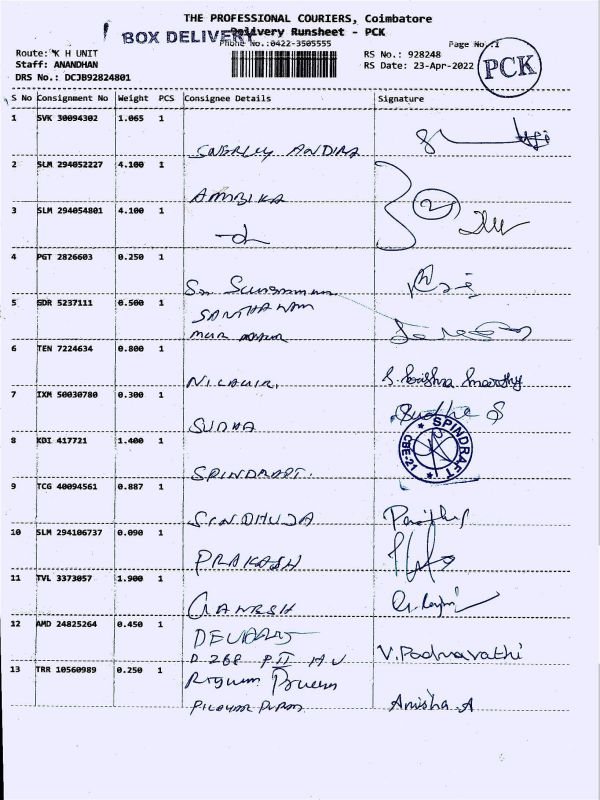 THE PROFESSIONAL COURIERS, Coimbatore
BOX DELIVERY
Delivery Runsheet - PCK
Phone No.:0422-3505555
Page No.:1
Route: K H UNIT
RS No.: 928248
Staff: ANANDHAN
RS Date: 23-Apr-2022
PCK
DRS No.: DCJB92824801
S No Consignment No Weight PCS Consignee Details Signature
1 SVK 30094302 1.065 1
2 SLM 294052227 4.100 1
AMBIKA
3 SLM 294054801 4.100 1
2
4 PGT 2826603 0.250 1
5 SDR 5237111 0.500 1
SANTHANAM
6 TEN 7224634 0.800 1
NILAGIRI
7 IXM 50030780 0.300 1
SUDHA Sudha S
8 KBI 417721 1.400 1
SPINDRAFT CBE-21
SPINDRAFT.
9 TCG 40094561 0.887 1
SINDHUJA
10 SLM 294106737 0.090 1
PRAKASH
11 TVL 3373057 1.900 1
GANESH
12 AMD 24825264 0.450 1
D 268 P II H U V. Padmavathi
13 TRR 10560989 0.250 1
Anisha A